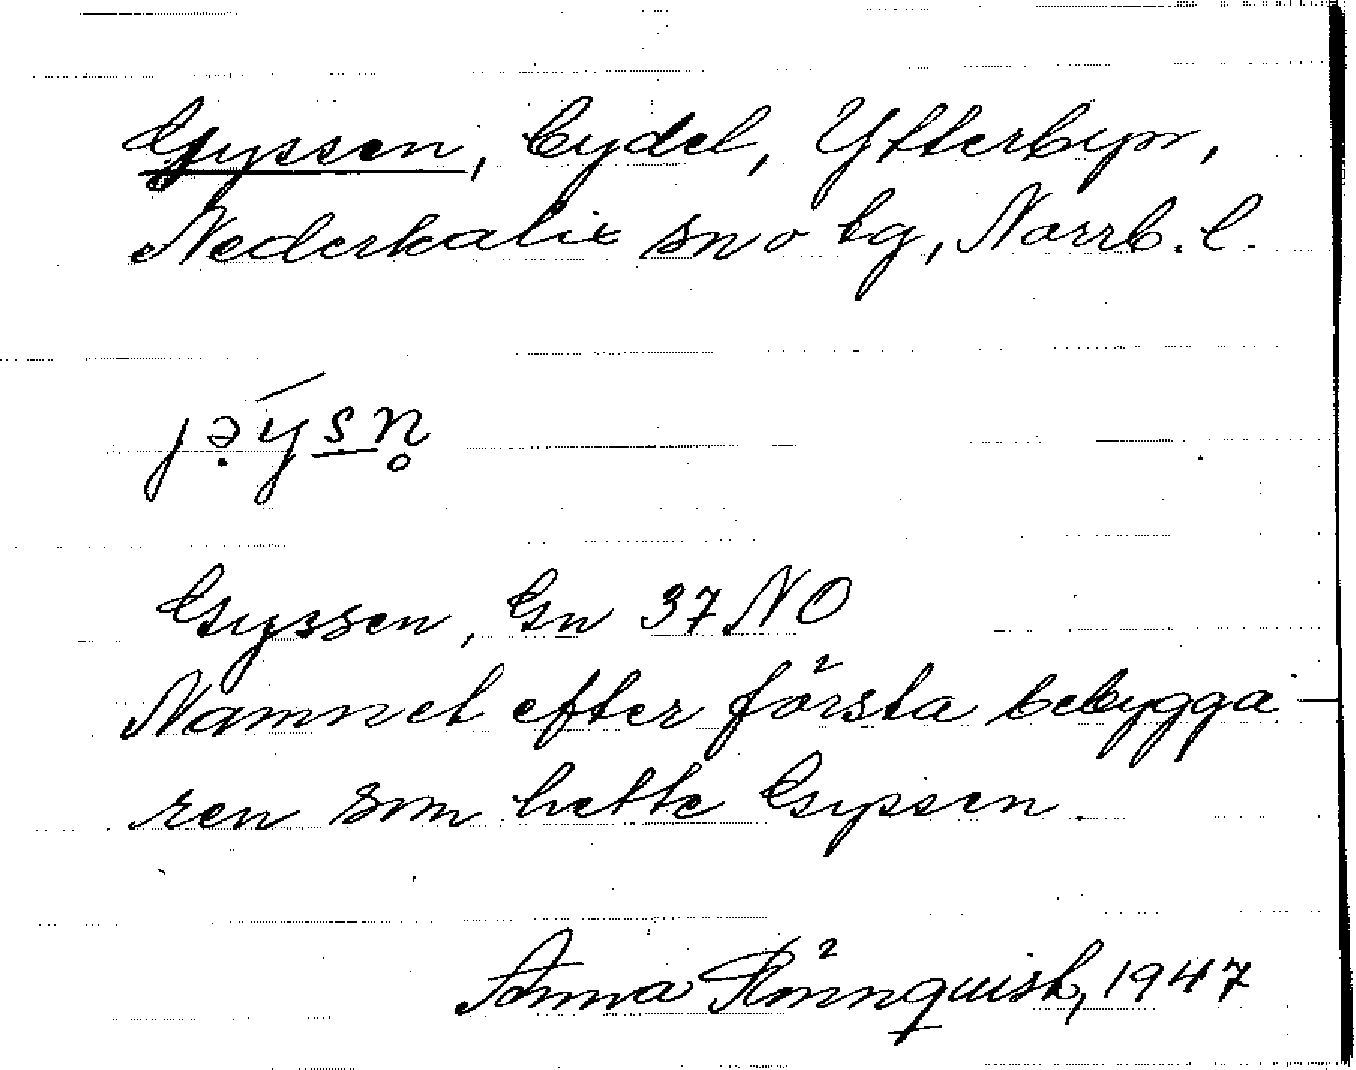 Gyssen, bydel, Ytterbyn,
Nederkalix sn o tg, Norrb. l.
Gyssen, Gn 37 NO
Namnet efter första bebygga-
ren som hette Gyssen.
Anna Rönnquist, 1947